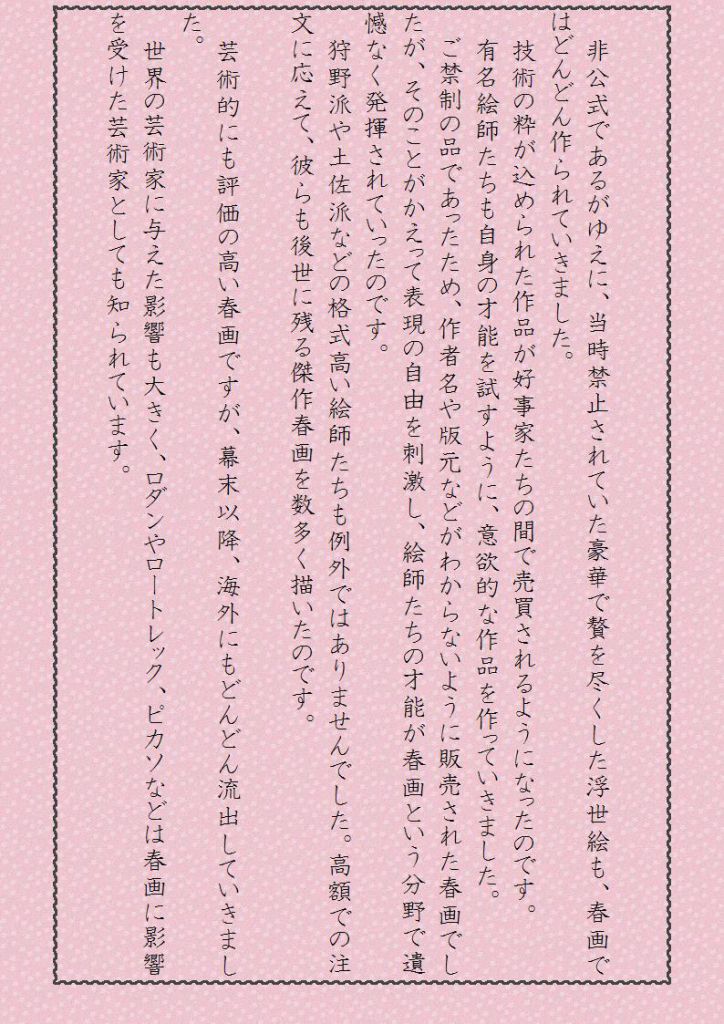 非公式であるがゆえに、当時禁止されていた豪華で贅を尽くした浮世絵も、春画で
はどんどん作られていきました。
技術の粋が込められた作品が好事家たちの間で売買されるようになったのです。
有名絵師たちも自身の才能を試すように、意欲的な作品を作っていきました。
ご禁制の品であったため、作者名や版元などがわからないように販売された春画でし
たが、そのことがかえって表現の自由を刺激し、絵師たちの才能が春画という分野で遺
憾なく発揮されていったのです。
狩野派や土佐派などの格式高い絵師たちも例外ではありませんでした。高額での注
文に応えて、彼らも後世に残る傑作春画を数多く描いたのです。
芸術的にも評価の高い春画ですが、幕末以降、海外にもどんどん流出していきまし
た。
世界の芸術家に与えた影響も大きく、ロダンやロートレック、ピカソなどは春画に影響
を受けた芸術家としても知られています。